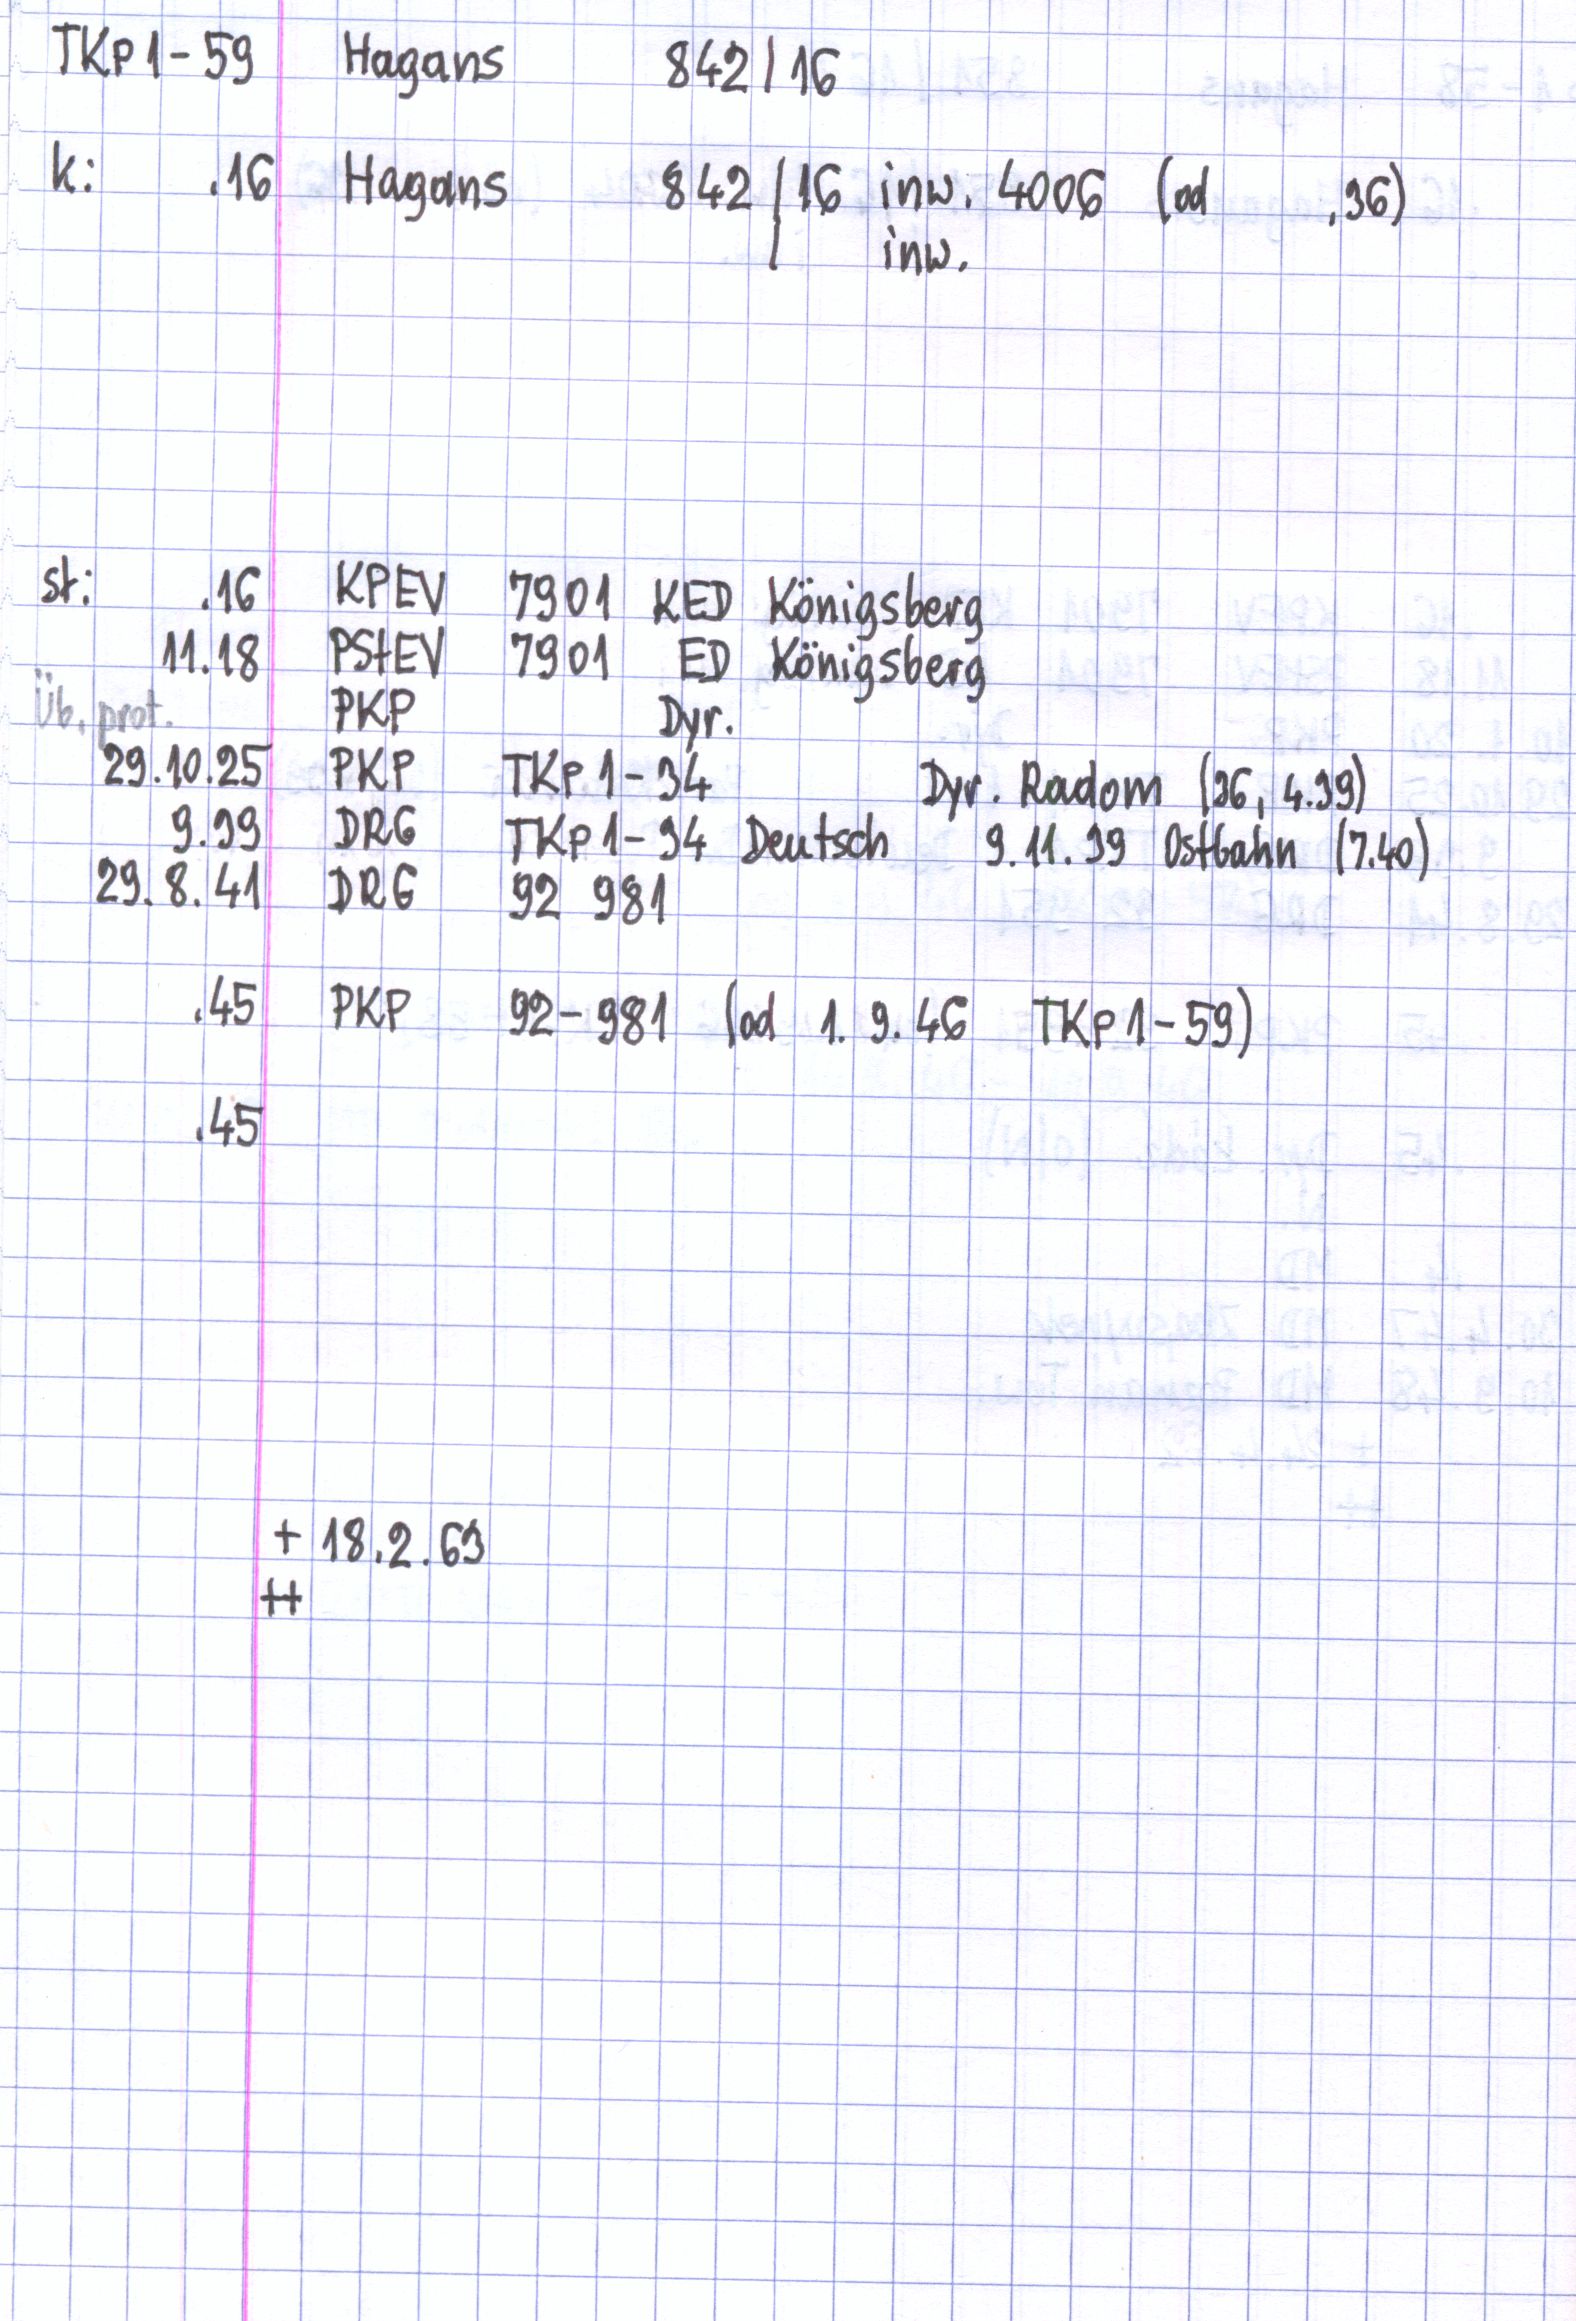 TKp1-59 Hagans 842/16
k: .16 Hagans 842/16 inw. 4006 (od .36)
/ inw.
st: .16 KPEV 7901 KED Königsberg
11.18 PStEV 7901 ED Königsberg
Üb. prot. PKP Dyr.
29.10.25 PKP TKp1-34 Dyr. Radom (36, 4.39)
9.39 DRG TKp1-34 Deutsch 9.11.39 Ostbahn (7.40)
29.8.41 DRG 92 981
.45 PKP 92-981 (od 1.9.46 TKp1-59)
.45
+ 18.2.63
++